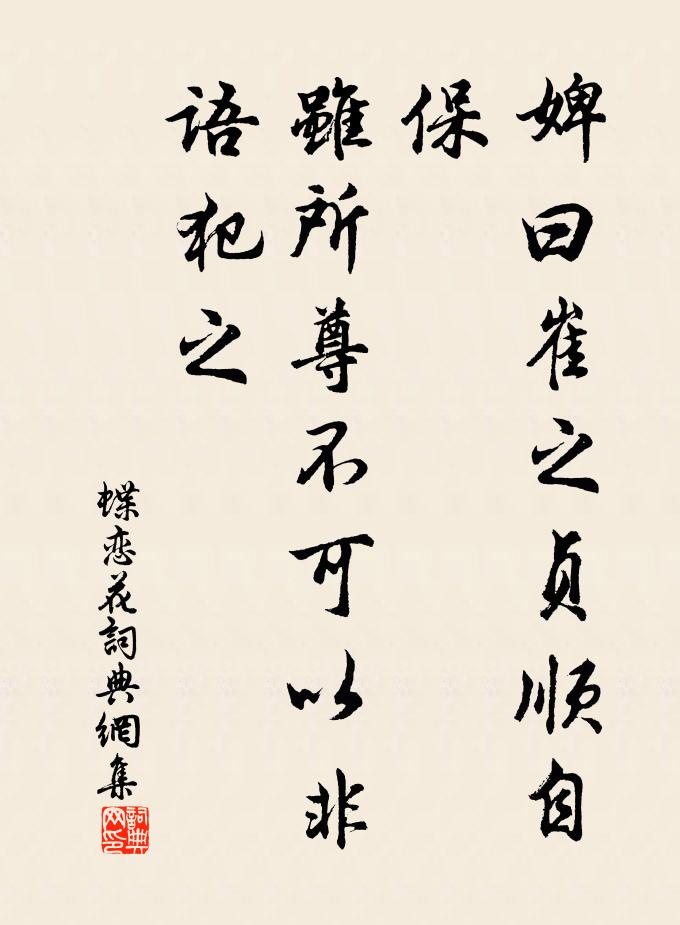 婢曰崔之貞順自
保
雖所尊不可以非
语犯之
蝶恋花詞典網集
詞典
网印